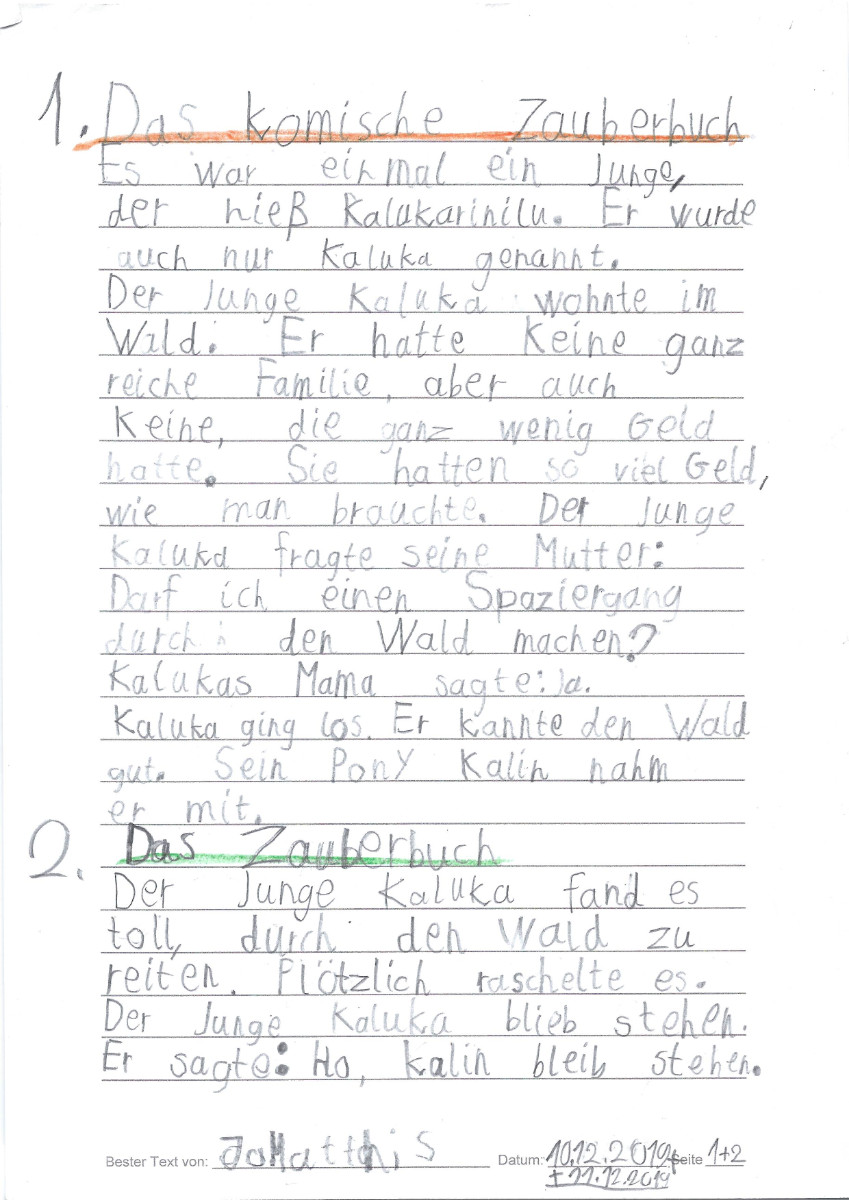 1. Das komische Zauberbuch
Es war einmal ein Junge,
der hieß Kalukarinilu. Er wurde
auch nur Kaluka genannt.
Der Junge Kaluka wohnte im
Wald. Er hatte keine ganz
reiche Familie, aber auch
keine, die ganz wenig Geld
hatte. Sie hatten so viel Geld,
wie man brauchte. Der Junge
Kaluka fragte seine Mutter:
Darf ich einen Spaziergang
durch den Wald machen?
Kalukas Mama sagte: Ja.
Kaluka ging los. Er kannte den Wald
gut. Sein Pony Kalin nahm
er mit.
2. Das Zauberbuch
Der Junge Kaluka fand es
toll, durch den Wald zu
reiten. Plötzlich raschelte es.
Der Junge Kaluka blieb stehen.
Er sagte: Ho, Kalin bleib stehen.
Bester Text von: Datum: 10.12.2019 Seite 1+2
+ 11.12.2019